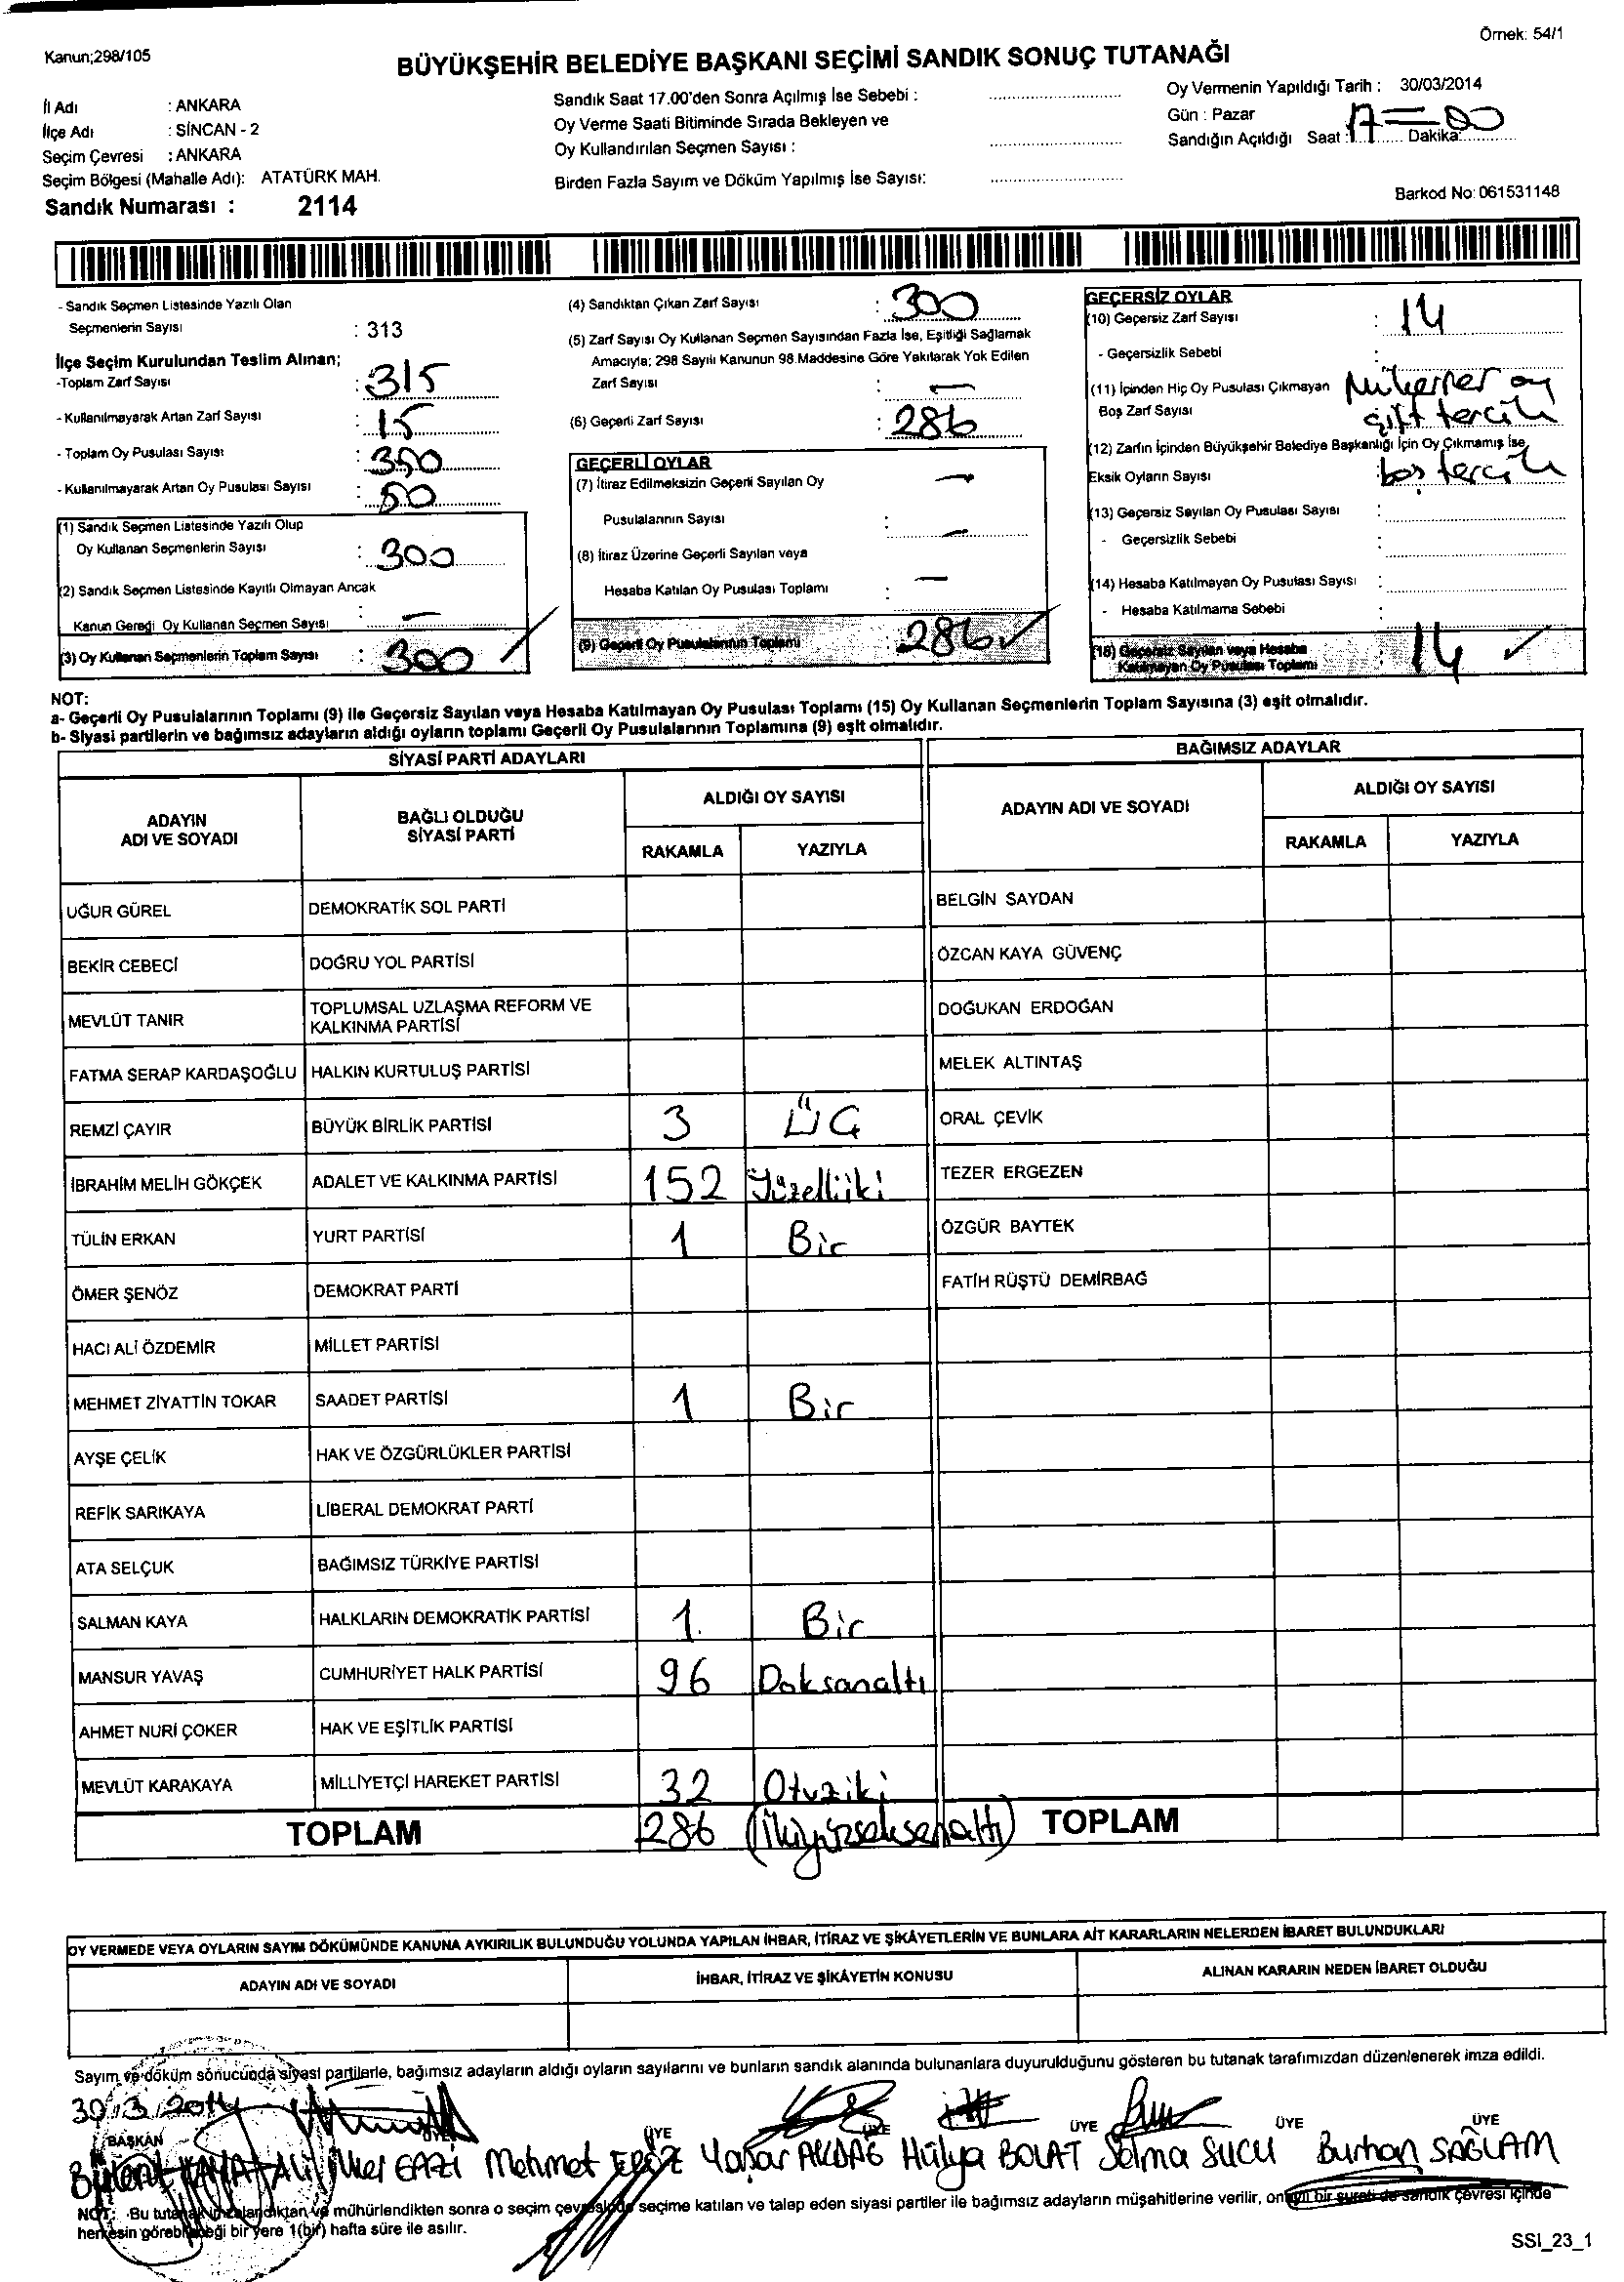 Örnek: 54/1
Kanun;298/105
BÜYÜKŞEHİR BELEDİYE BAŞKANI SEÇİMİ SANDIK SONUÇ TUTANAĞI
İl Adı : ANKARA
İlçe Adı : SİNCAN - 2
Seçim Çevresi : ANKARA
Seçim Bölgesi (Mahalle Adı): ATATÜRK MAH.
Sandık Numarası : 2114
Sandık Saat 17.00'den Sonra Açılmış İse Sebebi :
Oy Verme Saati Bitiminde Sırada Bekleyen ve
Oy Kullandırılan Seçmen Sayısı :
Birden Fazla Sayım ve Döküm Yapılmış İse Sayısı:
Oy Vermenin Yapıldığı Tarih : 30/03/2014
Gün : Pazar
Sandığın Açıldığı Saat : 17 = 00 Dakika:
Barkod No: 061531148
- Sandık Seçmen Listesinde Yazılı Olan
Seçmenlerin Sayısı : 313
İlçe Seçim Kurulundan Teslim Alınan;
-Toplam Zarf Sayısı : 315
- Kullanılmayarak Artan Zarf Sayısı : 15
- Toplam Oy Pusulası Sayısı : 350
- Kullanılmayarak Artan Oy Pusulası Sayısı : 50
(1) Sandık Seçmen Listesinde Yazılı Olup
Oy Kullanan Seçmenlerin Sayısı : 300
(2) Sandık Seçmen Listesinde Kayıtlı Olmayan Ancak
Kanun Gereği Oy Kullanan Seçmen Sayısı : —
(3) Oy Kullanan Seçmenlerin Toplam Sayısı : 300
(4) Sandıktan Çıkan Zarf Sayısı : 300
(5) Zarf Sayısı Oy Kullanan Seçmen Sayısından Fazla İse, Eşitliği Sağlamak
Amacıyla; 298 Sayılı Kanunun 98.Maddesine Göre Yakılarak Yok Edilen
Zarf Sayısı : —
(6) Geçerli Zarf Sayısı : 286
GEÇERLİ OYLAR
(7) İtiraz Edilmeksizin Geçerli Sayılan Oy —
Pusulalarının Sayısı : —
(8) İtiraz Üzerine Geçerli Sayılan veya
Hesaba Katılan Oy Pusulası Toplamı : —
(9) Geçerli Oy Pusulalarının Toplamı : 286 ✓
GEÇERSİZ OYLAR
(10) Geçersiz Zarf Sayısı : 14
- Geçersizlik Sebebi :
(11) İçinden Hiç Oy Pusulası Çıkmayan Mükerrer oy
Boş Zarf Sayısı çift tercih
(12) Zarfın İçinden Büyükşehir Belediye Başkanlığı İçin Oy Çıkmamış İse,
Eksik Oyların Sayısı boş tercih
(13) Geçersiz Sayılan Oy Pusulası Sayısı :
- Geçersizlik Sebebi :
(14) Hesaba Katılmayan Oy Pusulası Sayısı :
- Hesaba Katılmama Sebebi :
(15) Geçersiz Sayılan veya Hesaba
Katılmayan Oy Pusulası Toplamı : 14 ✓
NOT:
a- Geçerli Oy Pusulalarının Toplamı (9) ile Geçersiz Sayılan veya Hesaba Katılmayan Oy Pusulası Toplamı (15) Oy Kullanan Seçmenlerin Toplam Sayısına (3) eşit olmalıdır.
b- Siyasi partilerin ve bağımsız adayların aldığı oyların toplamı Geçerli Oy Pusulalarının Toplamına (9) eşit olmalıdır.
SİYASİ PARTİ ADAYLARI
ADAYIN ADI VE SOYADI
BAĞLI OLDUĞU SİYASİ PARTİ
ALDIĞI OY SAYISI
RAKAMLA YAZIYLA
UĞUR GÜREL DEMOKRATİK SOL PARTİ
BEKİR CEBECİ DOĞRU YOL PARTİSİ
MEVLÜT TANIR TOPLUMSAL UZLAŞMA REFORM VE
KALKINMA PARTİSİ
FATMA SERAP KARDAŞOĞLU HALKIN KURTULUŞ PARTİSİ
REMZİ ÇAYIR BÜYÜK BİRLİK PARTİSİ 3 ÜÇ
İBRAHİM MELİH GÖKÇEK ADALET VE KALKINMA PARTİSİ 152 Yüzelliiki
TÜLİN ERKAN YURT PARTİSİ 1 Bir
ÖMER ŞENÖZ DEMOKRAT PARTİ
HACI ALİ ÖZDEMİR MİLLET PARTİSİ
MEHMET ZİYATTİN TOKAR SAADET PARTİSİ 1 Bir
AYŞE ÇELİK HAK VE ÖZGÜRLÜKLER PARTİSİ
REFİK SARIKAYA LİBERAL DEMOKRAT PARTİ
ATA SELÇUK BAĞIMSIZ TÜRKİYE PARTİSİ
SALMAN KAYA HALKLARIN DEMOKRATİK PARTİSİ 1. Bir
MANSUR YAVAŞ CUMHURİYET HALK PARTİSİ 96 Doksanaltı
AHMET NURİ ÇOKER HAK VE EŞİTLİK PARTİSİ
MEVLÜT KARAKAYA MİLLİYETÇİ HAREKET PARTİSİ 32 Otuziki
TOPLAM 286 (İkiyüzseksenaltı)
BAĞIMSIZ ADAYLAR
ADAYIN ADI VE SOYADI
ALDIĞI OY SAYISI
RAKAMLA YAZIYLA
BELGİN SAYDAN
ÖZCAN KAYA GÜVENÇ
DOĞUKAN ERDOĞAN
MELEK ALTINTAŞ
ORAL ÇEVİK
TEZER ERGEZEN
ÖZGÜR BAYTEK
FATİH RÜŞTÜ DEMİRBAĞ
TOPLAM
OY VERMEDE VEYA OYLARIN SAYIM DÖKÜMÜNDE KANUNA AYKIRILIK BULUNDUĞU YOLUNDA YAPILAN İHBAR, İTİRAZ VE ŞİKÂYETLERİN VE BUNLARA AİT KARARLARIN NELERDEN İBARET BULUNDUKLARI
ADAYIN ADI VE SOYADI İHBAR, İTİRAZ VE ŞİKÂYETİN KONUSU ALINAN KARARIN NEDEN İBARET OLDUĞU
Sayım ve döküm sonucunda siyasi partilerle, bağımsız adayların aldığı oyların sayılarını ve bunların sandık alanında bulunanlara duyurulduğunu gösteren bu tutanak tarafımızdan düzenlenerek imza edildi.
30/3/2014
BAŞKAN ÜYE ÜYE ÜYE ÜYE ÜYE ÜYE
Bülent Ali İlker GAZİ Mehmet Yaşar AKDAĞ Hülya BOLAT Selma SUCU Burhan SAĞLAM
NOT: Bu tutanak imzalandıktan ve mühürlendikten sonra o seçim çevresinde seçime katılan ve talep eden siyasi partiler ile bağımsız adayların müşahitlerine verilir, onaylı bir sureti de sandık çevresi içinde
herkesin görebileceği bir yere 1(bir) hafta süre ile asılır.
SSI_23_1